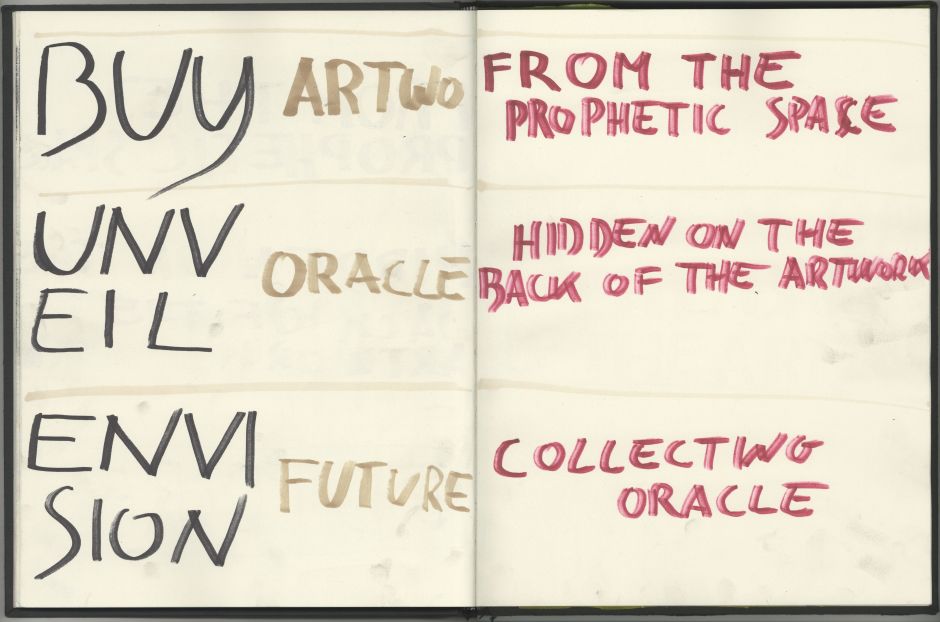 BUY ARTWO FROM THE
PROPHETIC SPACE
UNV
EIL ORACLE HIDDEN ON THE
BACK OF THE ARTWORK
ENVI
SION FUTURE COLLECTING
ORACLE